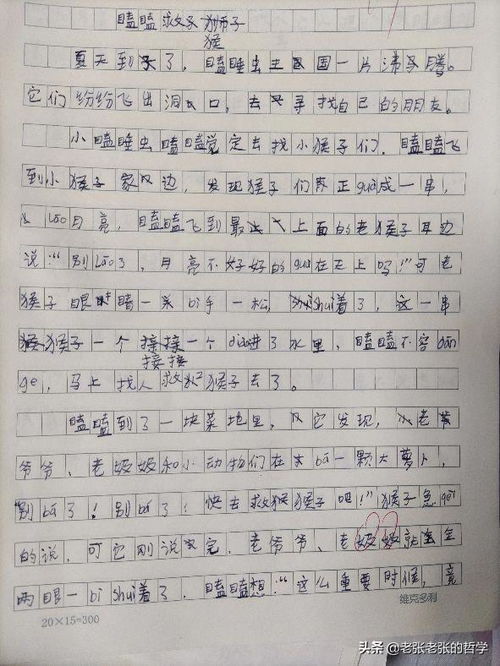 瞌瞌救猴子
夏天到了，瞌睡虫王国一片沸腾。
它们纷纷飞出洞口，去寻找自己的朋友。
小瞌睡虫瞌瞌决定去找小猴子们，瞌瞌飞
到小猴子家边，发现猴子们正guà成一串，
lāo月亮，瞌瞌飞到最上面的老猴子耳边
说：“别lāo了，月亮不好好的guà在天上吗！”可老
猴子眼睛一 bì手一松，shuì着了，这一串
猴子一个接一个diào进了水里，瞌瞌不容dān
ge，马上找人救猴子去了。
瞌瞌到了一块菜地里，它发现，老
爷爷、老奶奶和小动物们在bá一颗大萝卜，
“别bá了！别bá了！快去救猴子吧！”猴子急
的说，可它刚说完，老爷爷、老奶奶就
两眼一bì shuì着了，瞌瞌想：“这么重要时候，竟
20×15=300
维克多利
头条 @老张老张的哲学